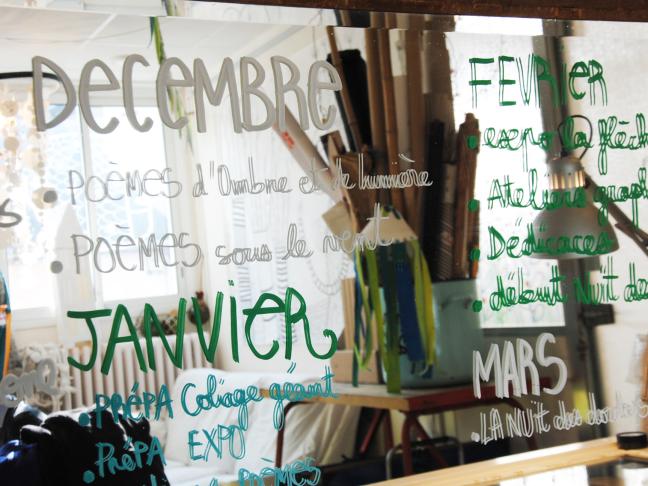 DECEMBRE
• POÈMES d'Ombre et de lumière
• POÈMES sous le vent
JANVIER
• PRÉPA Collage géant
• PRÉPA EXPO
POÈMES
FEVRIER
• expo la flèch
• Ateliers graph
• Dédicaces
• début Nuit des
MARS
• LA NUIT des